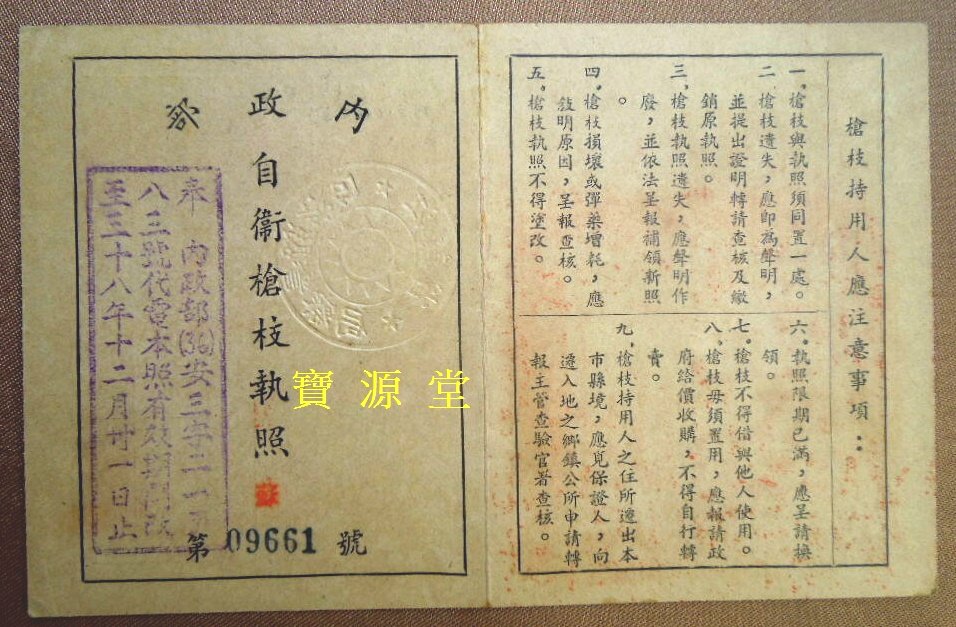 槍枝持用人應注意事項：
一。槍枝與執照須同置一處。
二。槍枝遺失，應即為聲明，
並提出證明轉請查核及繳
銷原執照。
三。槍枝執照遺失，應聲明作
廢，並依法呈報補領新照
。
四。槍枝損壞或彈藥增耗，應
敘明原因，呈報查核。
五。槍枝執照不得塗改。
六。執照限期已滿，應呈請換
領。
七。槍枝不得借與他人使用。
八。槍枝毋須置用，應報請政
府給價收購，不得自行轉
賣。
九。槍枝持用人之住所遷出本
市縣境，應覓保證人，向
遷入地之鄉鎮公所申請轉
報主管查驗官署查核。
內政部
自衛槍枝執照
第09661號
奉 內政部(36)安三字二一
八三號代電本照有效期間改
至三十八年十二月廿一日止
寶源堂